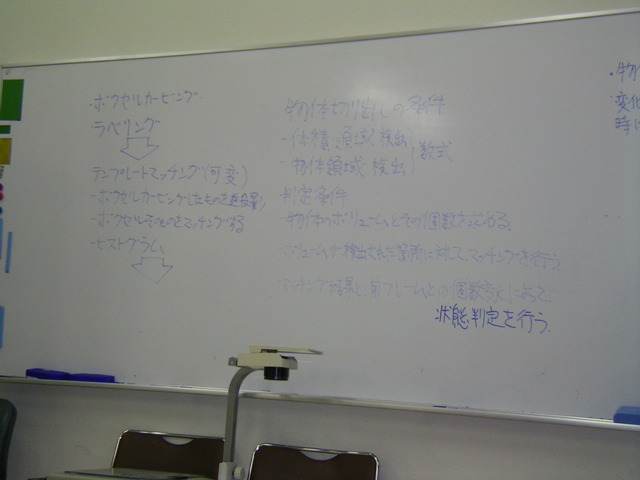 ・ボクセルカービング
ラベリング
テンプレートマッチング(可変)
-ボクセルカービングしたものを
-ボクセルそのものをマッチングする
-ヒストグラム
物体切り出しの条件
-体積:領域検出
-物体領域検出
数式
判定条件
-物体のボリュームとその個数を求める.
ボリュームで検出された箇所に対して、マッチングを行う
マッチング結果と、前フレームとの個数変化によって
状態判定を行う.
・物
変化
時に